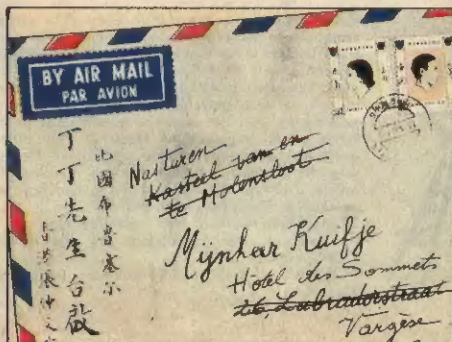 BY AIR MAIL
PAR AVION
比國布魯塞尔
丁丁先生台啟
Nasturen
Kasteel van en
te Molensloot
Mijnheer Kuifje
Hotel des Sommets
26, Labradorstraat
Vargèse